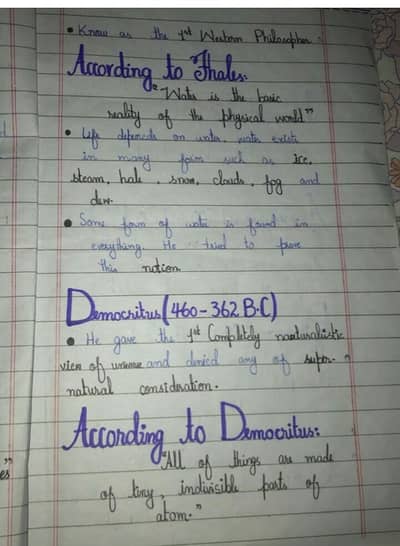 • Know as the 1st Western Philosopher.
According to Thales:
"Water is the basic
reality of the physical world"
• Life depends on water, water exists
in many form such as ice,
steam, hale, snow, clouds, fog and
dew.
• Some form of water is found in
everything. He tried to prove
this notion
Democritus (460-362 B.C)
• He gave the 1st Completely naturalistic
view of universe and denied any of super-
natural consideration.
According to Democritus:
"All of things are made
of tiny, indivisible parts of
atom."
"
es